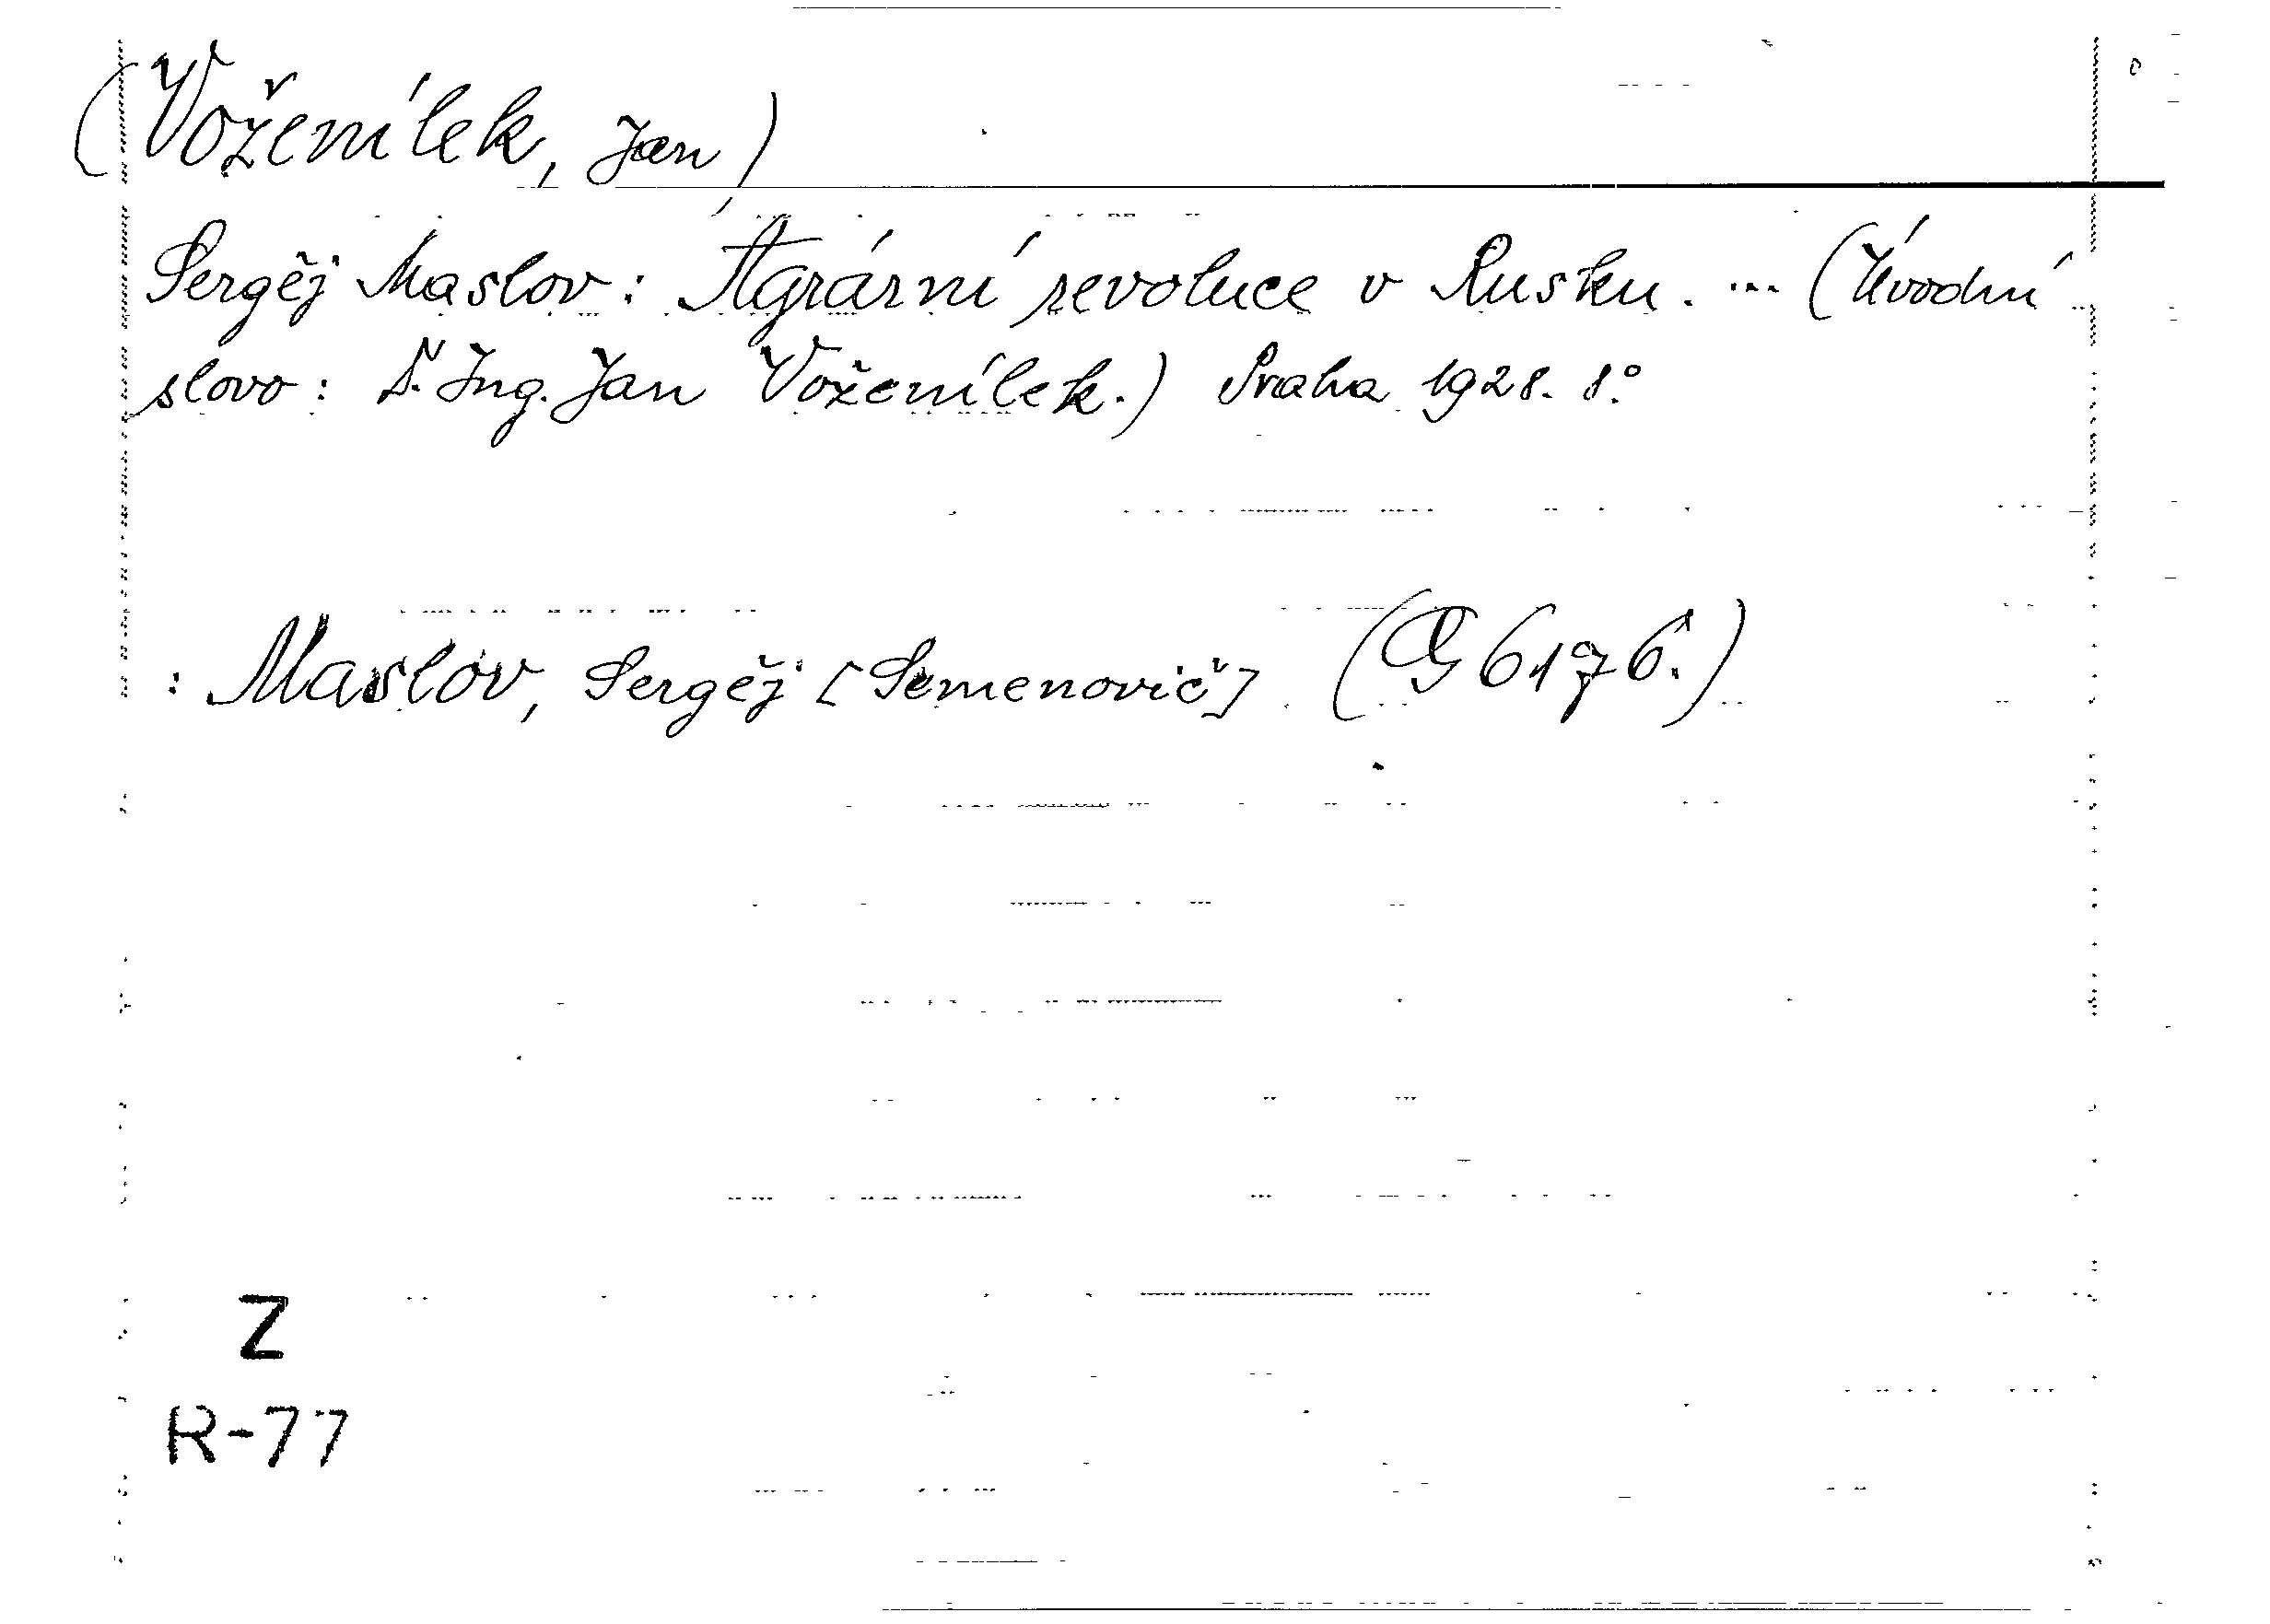 (Voženílek, Jan)
Sergěj Maslov: Agrární revoluce v Rusku. ... (Úvodní
slovo: Ř. Ing. Jan Voženílek.) Praha 1928. 8°.
: Maslov, Sergěj [Semenovič] (G 6176.)
Z
R-77